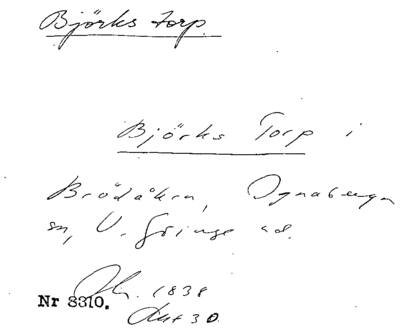 Björks torp.
Björks Torp i
Brödåkra, Ognaberga
sn, V. Göinge hd.
1838
Nr 8310. Akt 30